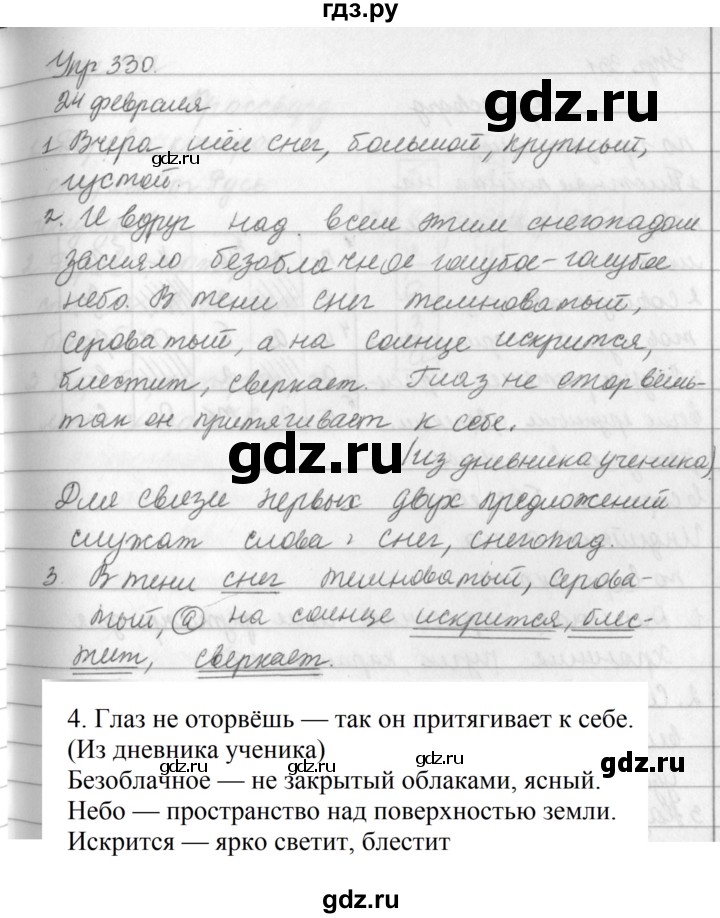 гдз.ру
Упр 330.
24 февраля
1 Вчера шёл снег, большой, крупный,
густой
2. И вдруг над всем этим снегопадом
засияло безоблачное голубое-голубое
небо. В тени снег темноватый,
сероватый, а на солнце искрится,
блестит, сверкает. Глаз не оторвёшь-
так он притягивает к себе.
(из дневника ученика)
Для связи первых двух предложений
служат слова: снег, снегопад.
3. В тени снег темноватый, серова-
тый, а на солнце искрится, блес-
тит, сверкает.
4. Глаз не оторвёшь — так он притягивает к себе.
(Из дневника ученика)
Безоблачное — не закрытый облаками, ясный.
Небо — пространство над поверхностью земли.
Искрится — ярко светит, блестит
gdz.ru
gdz.ru
gdz.ru
gdz.ru
gdz.ru
gdz.ru
gdz.ru
gdz.ru
gdz.ru
gdz.ru